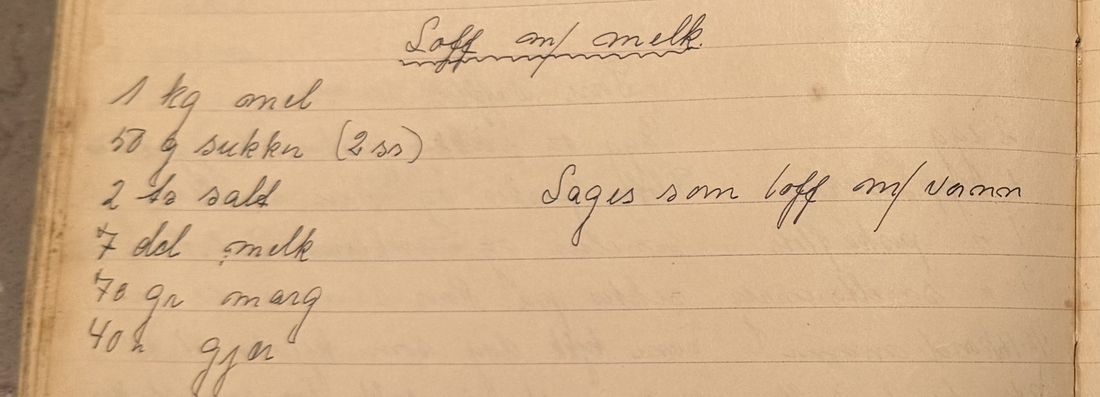 Loff m/ melk.
1 kg mel
50 g sukker (2 ss)
2 ts salt
Lages som loff m/ vann
7 dl melk
70 gr marg
40 gjær